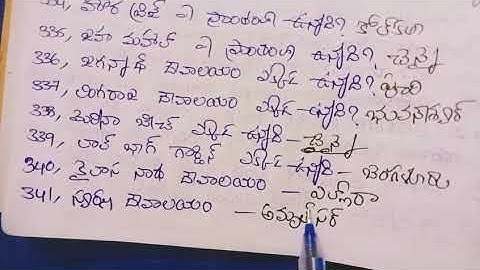 334, హౌరా బ్రిడ్జ్ ఏ ప్రాంతంలో ఉన్నది? కోల్‌కతా
335, జహా మహల్ ఏ ప్రాంతంలో ఉన్నది? చెన్నై
336, జగన్నాథ్ దేవాలయం ఎక్కడ ఉన్నది? పూరి
337, లింగరాజ దేవాలయం ఎక్కడ ఉన్నది? భువనేశ్వర్
338, మెరీనా బీచ్ ఎక్కడ ఉన్నది - చెన్నై
339, లాల్ భాగ్ గార్డెన్ ఎక్కడ ఉన్నది - బెంగళూరు
340, కైలాస నాథ దేవాలయం - ఎల్లోరా
341, స్వర్ణ దేవాలయం - అమృత్‌సర్